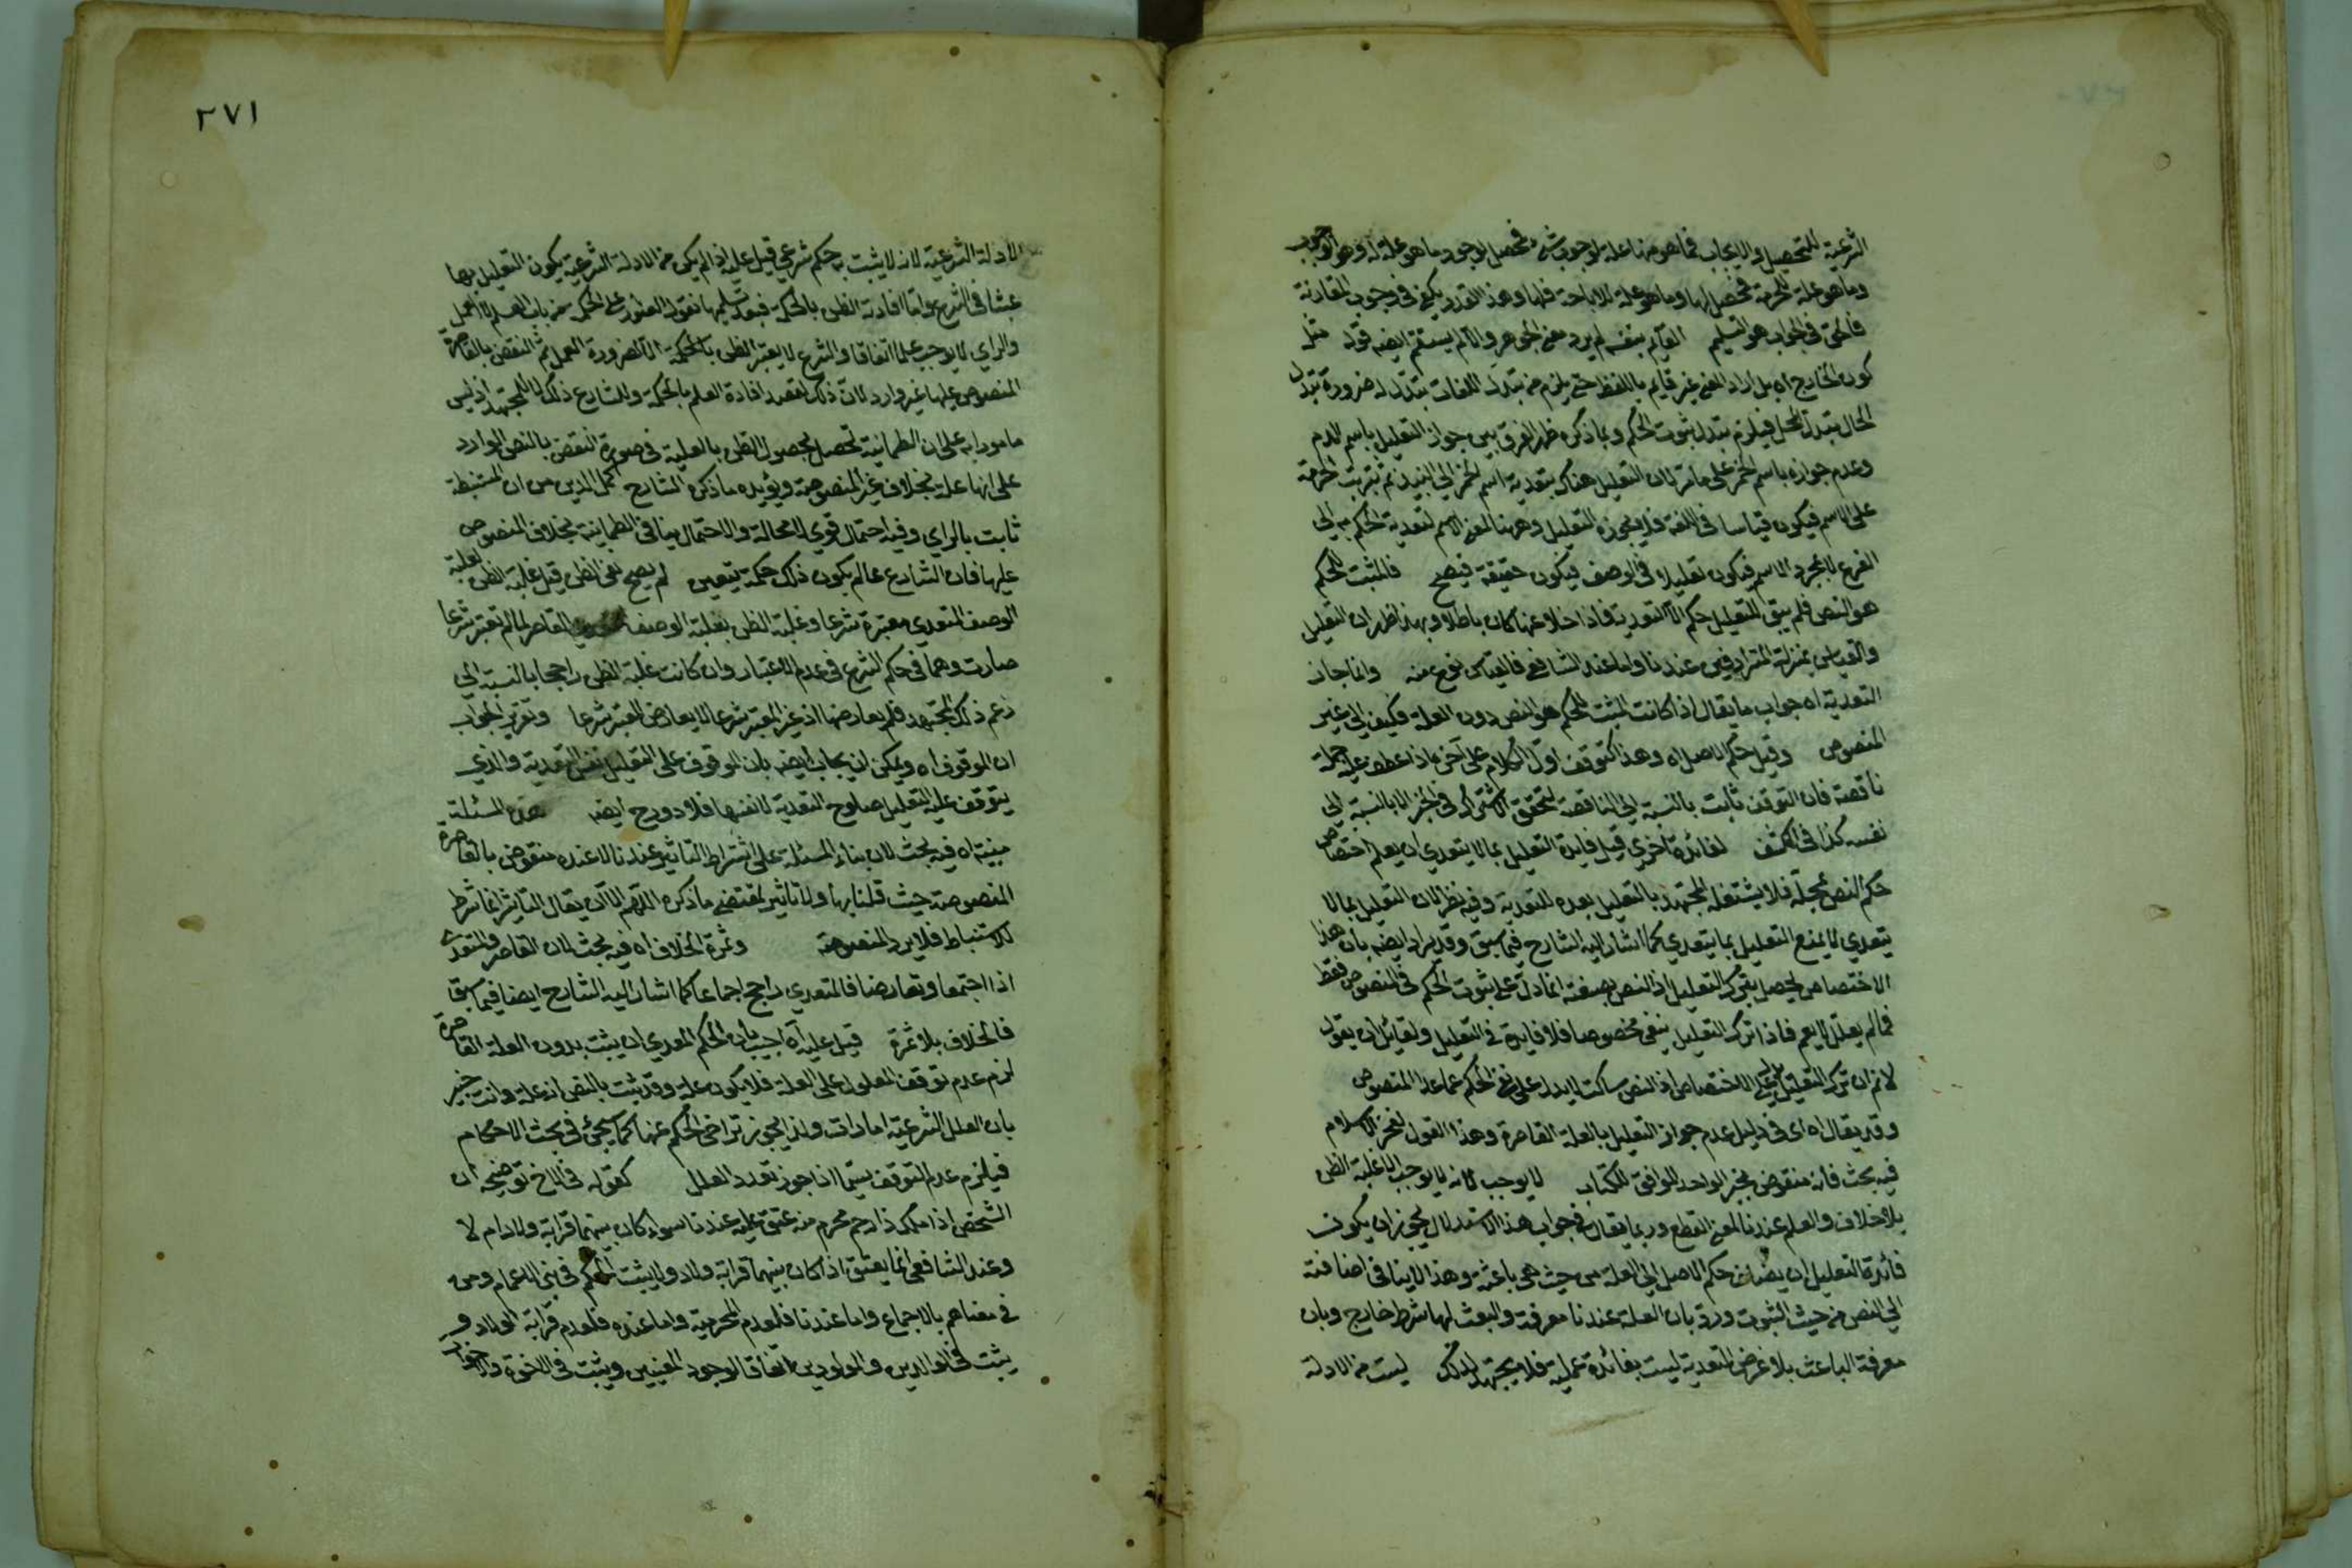 الشرعية للتحصيل والايجاب فما هو منها علة لوجوب شئ فمحصل لوجود ما هو علة له وهو الوجوب
وما هو علة للحرمة فمحصل لها وما هو علة للاباحة فلها وهذا القدر يكفي في وجوب المقارنة
فالحق في الجواب هو التسليم القايم بنفسه لم يرد معنى الجوهر والا لم يستقم ايضه قوله مثل
كون الخارج اه بل اراد المعنى غير قايم باللفظ حتى يلزم من تبدل اللغات تبدله ضرورة تبدل
الحال بتبدل المحل فيلزم تبدل ثبوت الحكم وبما ذكره ظهر الفرق بين جواز التعليل باسم الدم
وعدم جوازه باسم الخمر على ما مر لان التعليل هناك بتعدية اسم الخمر الى النبيذ ثم ترتب الحرمة
على الاسم فيكون قياسا في اللغة فلا يجوز التعليل وههنا لمعنى الاسم لتعدية الحكم به الى
الفرع لا بمجرد الاسم فيكون تعليلا في الوصف فيكون حقيقة فيصح فالمثبت للحكم
هو النص فلم يبق للتعليل حكم الا التعدية فاذا خلا عنها كان باطلا وبهذا ظهر ان التعليل
والقياس بمنزلة المترادفين عندنا واما عند الشافعي فالقياس نوع منه وانما جاز
التعدية اه جواب ما يقال اذا كانت المثبت للحكم هو النص دون العلة فكيف الى غير
المنصوص وقيل حكم الاصل اه وهذا كتوقف اول الكلام على آخره اذا عطف عليه جملة
ناقصة فان التوقف ثابت بالنسبة الى الناقصة لتحقق الاشتراك في الخبر لا بالنسبة الى
نفسه كذا في الكشف لفائدة اخرى قيل فايدة التعليل بما لا يتعدى ان يعلم اختصاص
حكم النص بمحله فلا يشتغل المجتهد بالتعليل بعده للتعدية وفيه نظر لان التعليل بما لا
يتعدى لا يمنع التعليل بما يتعدى كما اشار اليه الشارح فيما سبق وقد يراد ايضه بان هذا
الاختصاص يحصل بترك التعليل اذ النص بصيغته انما دل على ثبوت الحكم في المنصوص فقط
فما لم يعلل لا يعم فاذا ترك التعليل يبقى مخصوصا فلا فايدة في التعليل ولقائل ان يقول
لا نم ان ترك التعليل الاختصاص اذ النص ساكت لا يدل على نفي الحكم عما عدا المنصوص
وقد يقال اه اى في دليل عدم جواز التعليل بالعلة القاصرة وهذا القول لفخر الاسلام
فيه بحث فانه منقوض بخبر الواحد الموافق للكتاب لا يوجب لانه لا يوجب الا غلبة الظن
بلا خلاف والعلم عندنا لمعنى القطع وربما يقال في جواب هذا الاستدلال يجوز ان يكون
فائدة التعليل ان يضاف حكم الاصل الى العلة من حيث هي باعثة وهذا لا ينافي اضافته
الى النص من حيث الثبوت ورد بان العلة عندنا معرفة والبعث لها شرط خارج وبان
معرفة الباعث بلا غرض التعدية ليست بفائدة عملية فلا يجتهد لذلك ليست من الادلة
٢٧١
الادلة الشرعية لانه لا يثبت به حكم شرعي قيل عليه اذا لم يكن من الادلة الشرعية يكون التعليل بها
عبثا في الشرع واما افادته الظن بالحكمة فبعد تسليمها نقول العثور على الحكمة من باب العلم لا العمل
والراي لا يوجب علما اتفاقا والشرع لا يعتبر الظن بالحكمة الا لضرورة العمل ثم النقض بالقاصرة
المنصوص عليها غير وارد لان ذلك لقصد افادة العلم بالحكمة وللشارع ذلك لا للمجتهد اذ ليس
مامورا به على ان الطمانينة تحصل بحصول الظن بالعلية في صورة النقض بالنص الوارد
على انها علة بخلاف غير المنصوصة ويؤيده ما ذكره الشارح اكمل الدين من ان المستنبطة
ثابت بالراي وفيه احتمال قوي لا محالة والاحتمال ينافي الطمانينة بخلاف المنصوص
عليها فان الشارع عالم بكون ذلك حكمة يتعين لم يصح نفي الظن قيل غلبة الظن لعلية
الوصف المتعدي معتبرة شرعا وغلبة الظن بعلية الوصف القاصر لما لم تعتبر شرعا
صارت وهما في حكم الشرع في عدم الاعتبار وان كانت غلبة الظن راجحا بالنسبة الى
زعم ذلك المجتهد فلم يعارضها اذ غير المعتبر شرعا لا يعارض المعتبر شرعا وتقرير الجواب
ان الموقوف اه ويمكن ان يجاب ايضه بان الموقوف على التعليل نفس التعدية والذي
يتوقف عليه التعليل صلوح التعدية لا نفسها فلا دور ح ايضه هذه المسئلة
مبنية اه فيه بحث لان بناء المسئلة على اشتراط التاثير عندنا لا عنده منقوض بالقاصرة
المنصوصة حيث قلنا بها ولا تاثير لمقتضى ما ذكره اللهم الا ان يقال التاثير انما شرط
للاستنباط فلا يرد المنصوصة وثمرة الخلاف اه فيه بحث لان القاصر والمتعدى
اذا اجتمعا وتعارضا فالمتعدي راجح اجماعا كما اشار اليه الشارح ايضا فيما سبق
فالخلاف بلا ثمرة قيل عليه اه اجيب بان الحكم المعدي ان يثبت بدون العلة القاصرة
لزم عدم توقف المعلول على العلة فلا يكون علة وقد ثبت بالنص انه علة وانت خبير
بان العلل الشرعية امارات ولذا يجوز تراخى الحكم عنها كما سيجئ في بحث الاحكام
فيلزم عدم التوقف سيما اذا جوز تعدد العلل كقوله في الاخ توضيحه ان
الشخص اذا ملك ذا رحم محرم منه عتق عليه عندنا سواء كان بينهما قرابة ولاد ام لا
وعند الشافعي انما يعتق اذا كان بينهما قرابة ولاد ولا يثبت الحكم في بني الاعمام ومن
في معناهم بالاجماع واما عندنا فلعدم المحرمية واما عنده فلعدم قرابة الولاد و
يثبت في الوالدين والمولودين اتفاقا لوجود المعنيين ويثبت في الاخوة والاخوات